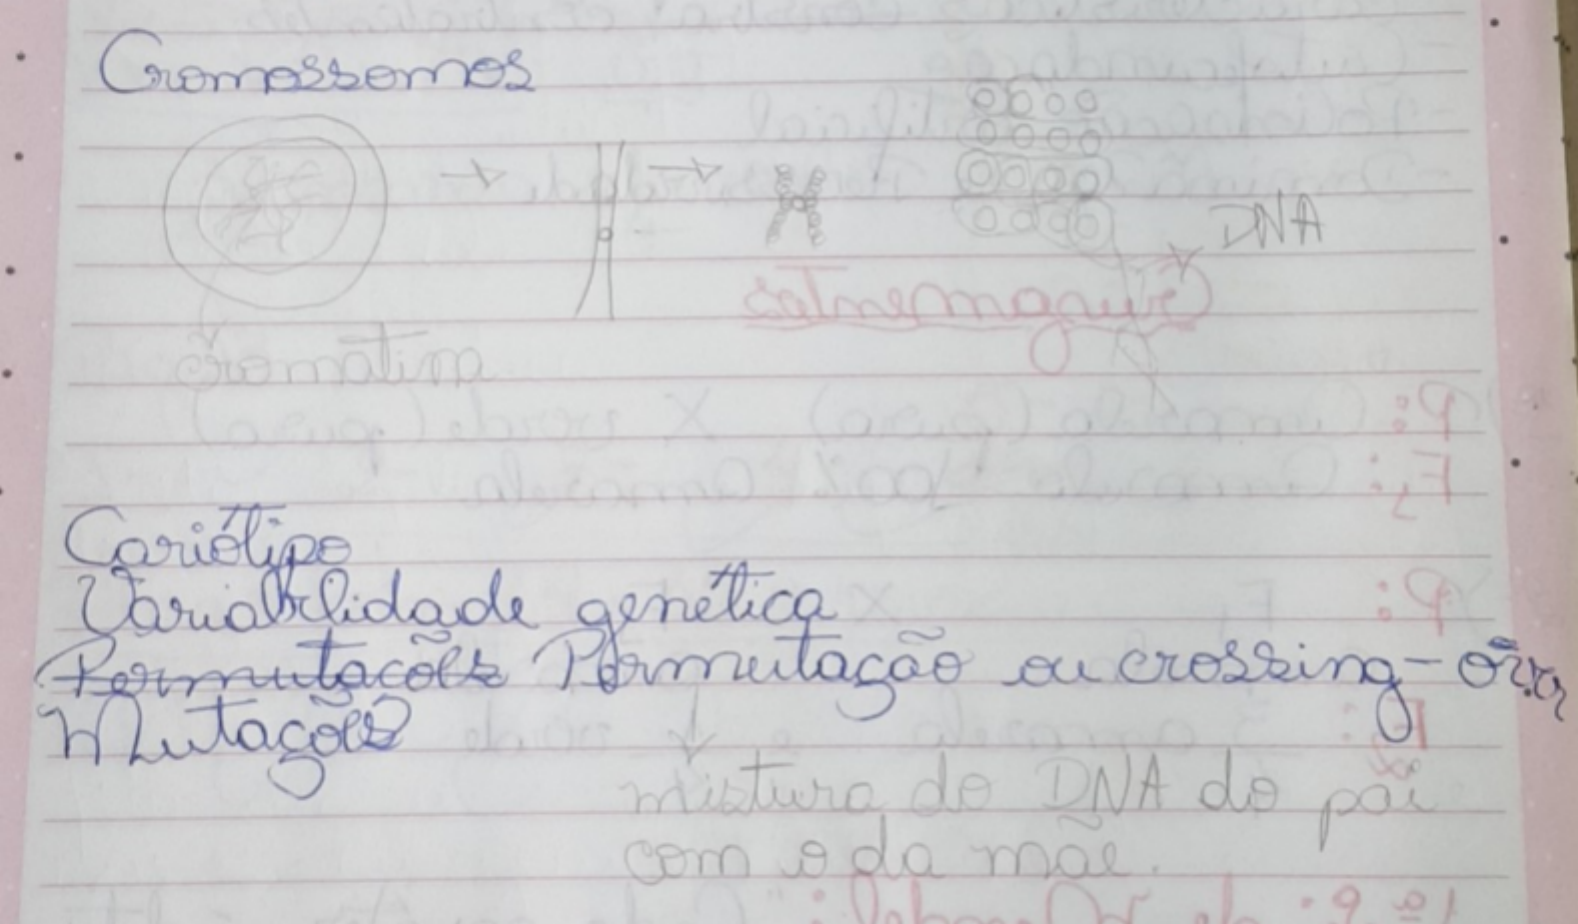 Cromossomos
DNA
cromatina
Cariótipo
Variabilidade genética
Permutações Permutação ou crossing-over
Mutações
mistura do DNA do pai
com o da mãe.